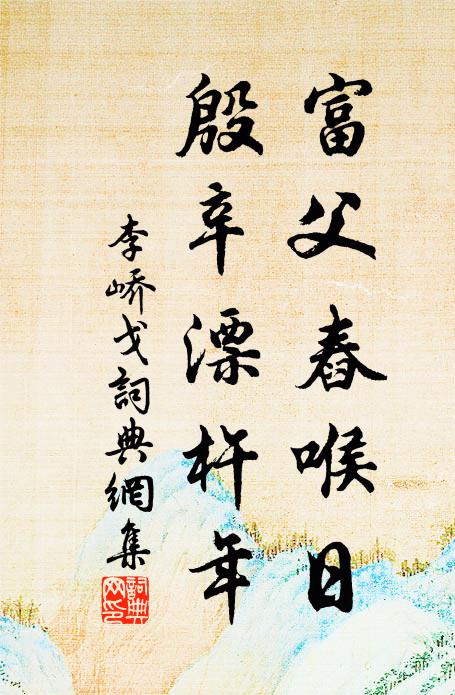 富父舂喉日
殷辛漂杵年
李嶠戈詞典網集
詞典
网印